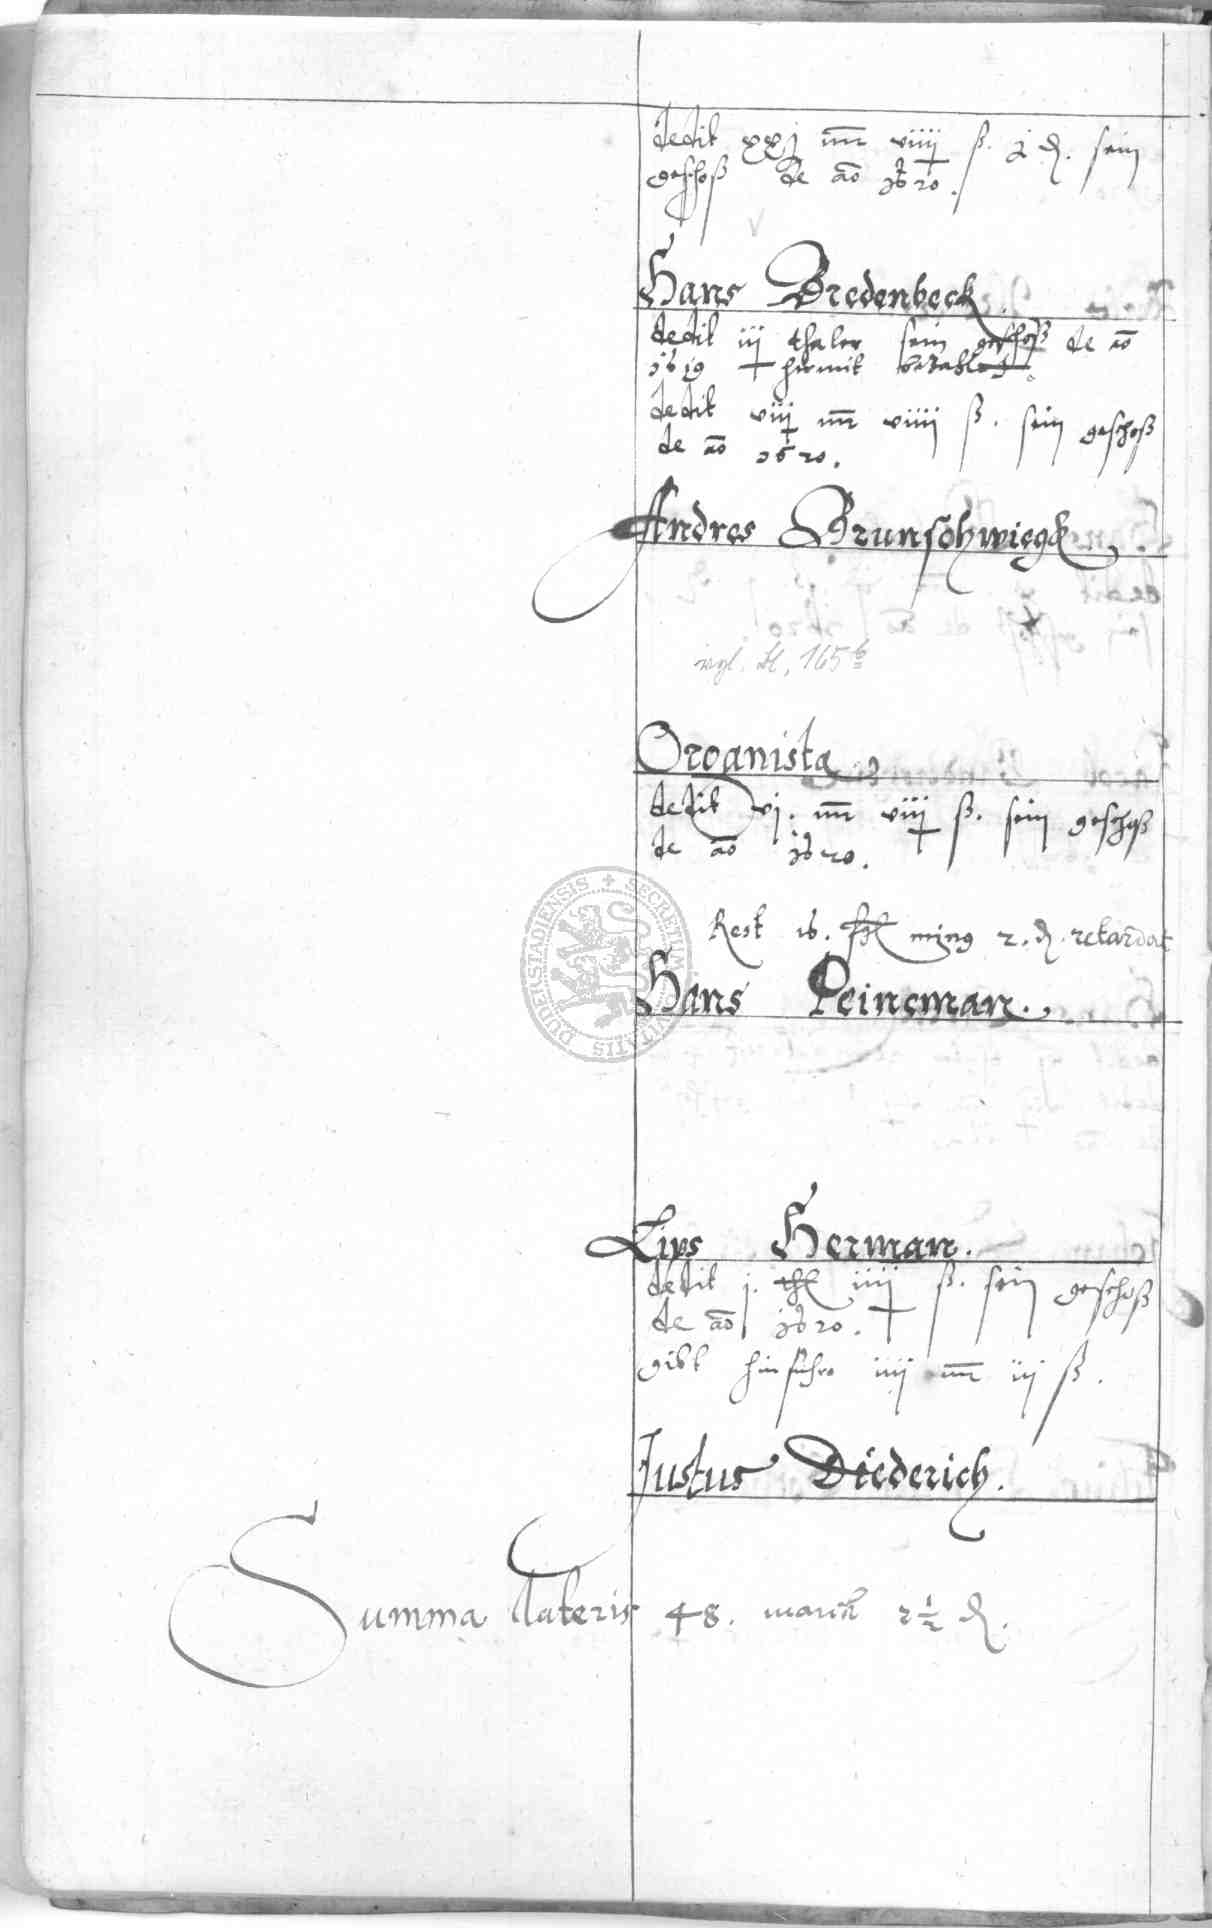 dedit xxj mr viiij ß. j d. sein
geschoß de ao 1620.
Hans Bredenbeck
dedit iij thaler sein geschoß de ao
1619 hirmit bezahlet
dedit viij mr viiij ß. sein geschoß
de ao 1620.
Andres Brunschwiegk
vgl. Bl. 165b
Organista
dedit vj. mr viiij ß. sein geschoß
de ao 1620.
Rest 16. ming 2. d. retardat
Hans Peineman.
SECRETUM CIVITATIS DUDERSTADIENSIS
Lips Herman.
dedit j. thl iiij ß. sein geschoß
de ao 1620.
gibt hinführo iiij mr iij ß.
Justus Diederich.
Summa lateris 48. marck 2½ d.